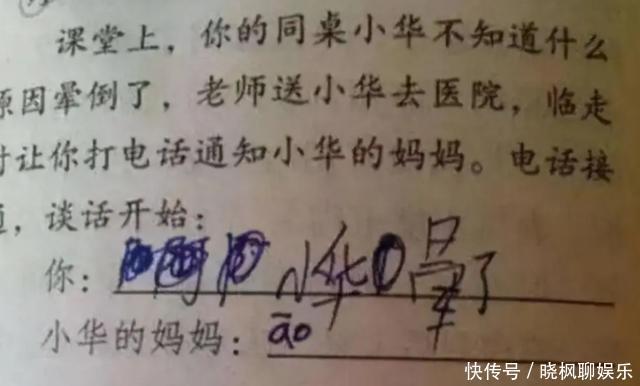 课堂上，你的同桌小华不知道什么
原因晕倒了，老师送小华去医院，临走
时让你打电话通知小华的妈妈。电话接
通，谈话开始：
你：小华晕了
小华的妈妈：āo
快传号／晓枫聊娱乐